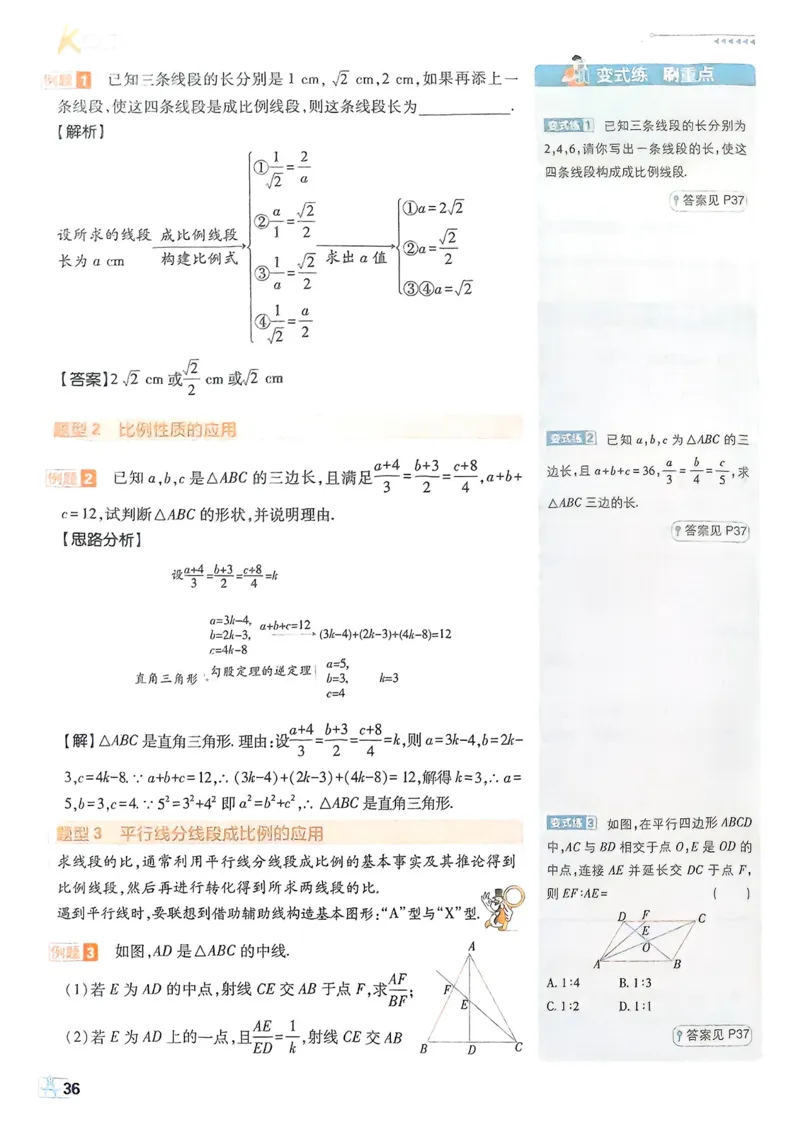 例题1 已知三条线段的长分别是 1 cm, √2 cm,2 cm,如果再添上一
条线段,使这四条线段是成比例线段,则这条线段长为________.
【解析】
设所求的线段长为 a cm
成比例线段
构建比例式
①1/√2=2/a
②a/1=√2/2
③1/a=√2/2
④1/√2=a/2
求出 a 值
①a=2√2
②a=√2/2
③④a=√2
【答案】2√2 cm 或 √2/2 cm 或√2 cm
题型2 比例性质的应用
例题2 已知 a,b,c 是△ABC 的三边长,且满足(a+4)/3=(b+3)/2=(c+8)/4,a+b+
c=12,试判断△ABC 的形状,并说明理由.
【思路分析】
设(a+4)/3=(b+3)/2=(c+8)/4=k
a=3k-4,
b=2k-3,
c=4k-8
a+b+c=12
(3k-4)+(2k-3)+(4k-8)=12
直角三角形
勾股定理的逆定理
a=5,
b=3,
c=4
k=3
【解】△ABC 是直角三角形. 理由:设(a+4)/3=(b+3)/2=(c+8)/4=k,则 a=3k-4,b=2k-
3,c=4k-8.∵ a+b+c=12,∴ (3k-4)+(2k-3)+(4k-8)=12,解得 k=3,∴ a=
5,b=3,c=4.∵ 5²=3²+4² 即 a²=b²+c²,∴ △ABC 是直角三角形.
题型3 平行线分线段成比例的应用
求线段的比,通常利用平行线分线段成比例的基本事实及其推论得到
比例线段,然后再进行转化得到所求两线段的比.
遇到平行线时,要联想到借助辅助线构造基本图形:“A”型与“X”型.
例题3 如图,AD 是△ABC 的中线.
(1)若 E 为 AD 的中点,射线 CE 交 AB 于点 F,求AF/BF;
(2)若 E 为 AD 上的一点,且AE/ED=1/k,射线 CE 交 AB
A
F
E
B
D
C
36
变式练 刷重点
变式练1 已知三条线段的长分别为
2,4,6,请你写出一条线段的长,使这
四条线段构成成比例线段.
答案见 P37
变式练2 已知 a,b,c 为△ABC 的三
边长,且 a+b+c=36,a/3=b/4=c/5,求
△ABC 三边的长.
答案见 P37
变式练3 如图,在平行四边形 ABCD
中,AC 与 BD 相交于点 O,E 是 OD 的
中点,连接 AE 并延长交 DC 于点 F,
则 EF∶AE= ( )
D
F
C
E
O
A
B
A. 1∶4 B. 1∶3
C. 1∶2 D. 1∶1
答案见 P37